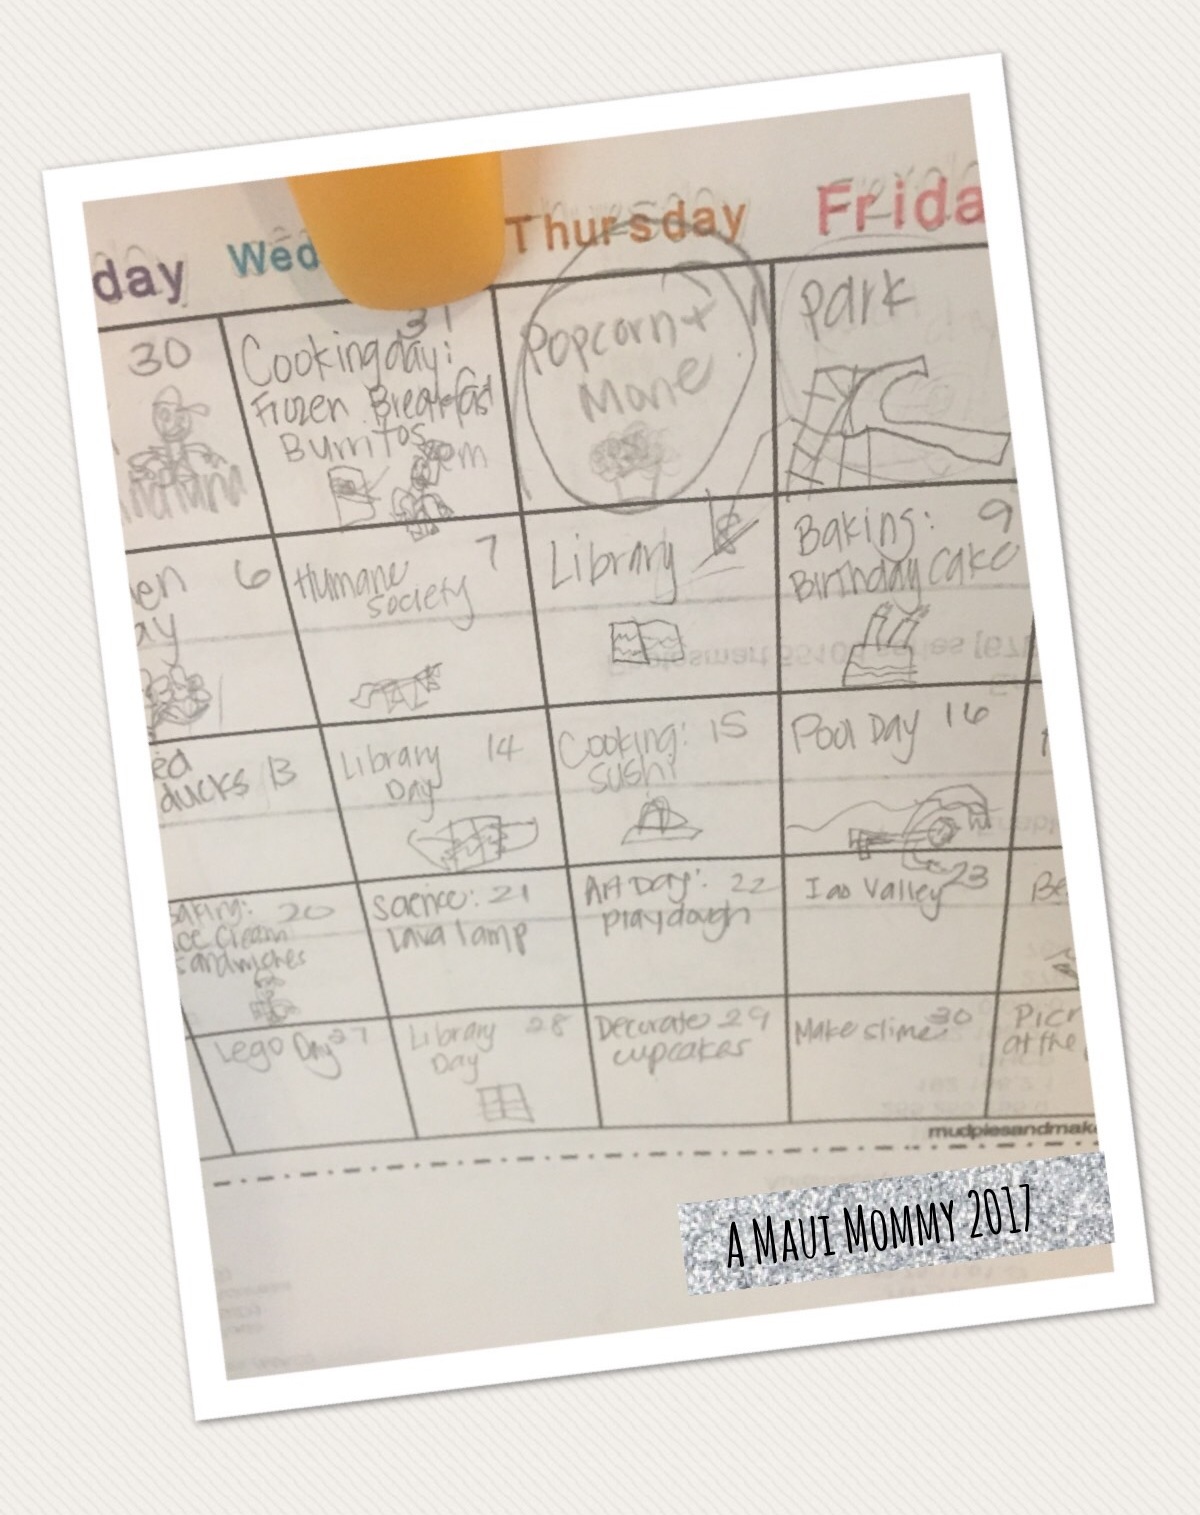 day Wed Thursday Frida
30
31
Cooking day:
Frozen Breakfast
Burritos
Popcorn +
Movie
park
en 6
ay
Humane 7
Society
Library 8
Baking: 9
Birthday Cake
ed
ducks 13
Library 14
Day
Cooking: 15
Sushi
Pool Day 16
Baking: 20
Ice Cream
Sandwiches
Science: 21
Lava lamp
Art Day: 22
playdough
Iao Valley 23
Be
Lego Day 27
Library 28
Day
Decorate 29
cupcakes
Make slime 30
Picn
at the
mudpiesandmake
A Maui Mommy 2017